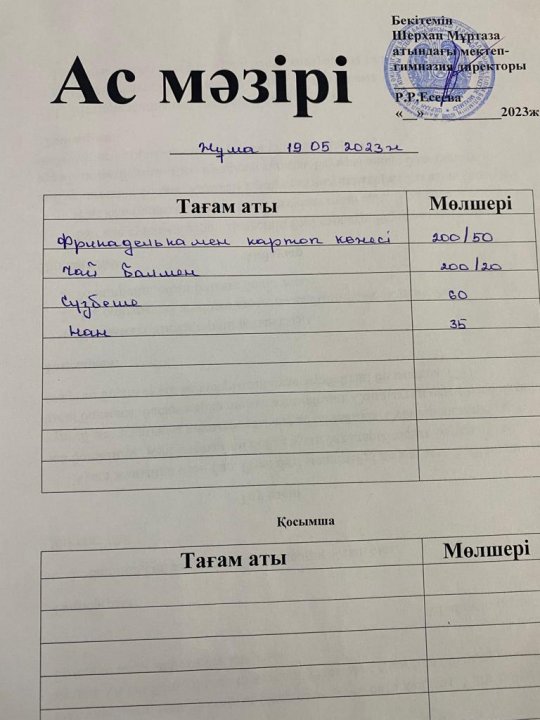 Бекітемін
Шерхан Мұртаза
атындағы мектеп-
гимназия директоры
Р.Р.Есеева
« » 2023ж
Ас мәзірі
Жұма 19 05 2023ж
Тағам аты Мөлшері
Фрикаделькамен картоп көжесі 200/50
Чай Балмен 200/20
Сүзбеше 60
Нан 35
Қосымша
Тағам аты Мөлшері